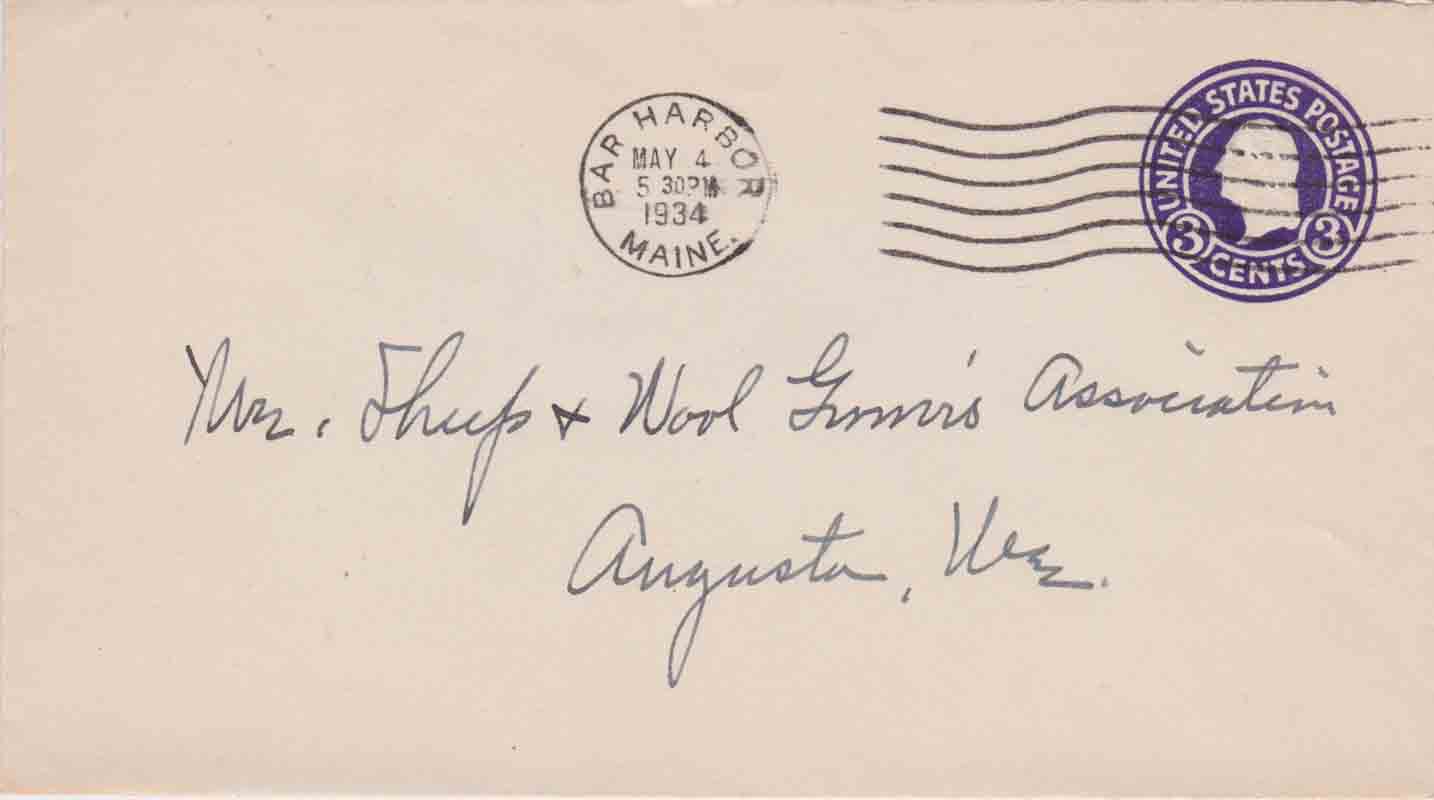 BAR HARBOR
MAY 4
5 30PM
1934
MAINE.
UNITED STATES POSTAGE
3 3
CENTS
Me. Sheep & Wool Grower's Association
Augusta, Me.